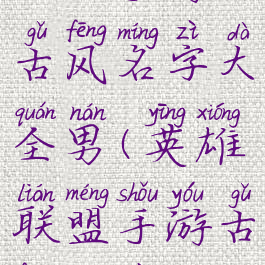 gǔ fēng míng zì dà
古风名字大
quán nán yīng xióng
全男(英雄
lián méng shǒu yóu gǔ
联盟手游古